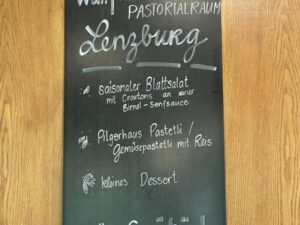 PASTORIALRAUM
Lenzburg
saisonaler Blattsalat
mit Croutons an einer
Birnel-Senfsauce
Pilgerhaus Pastetli /
Gemüsepastetli mit Reis
kleines Dessert